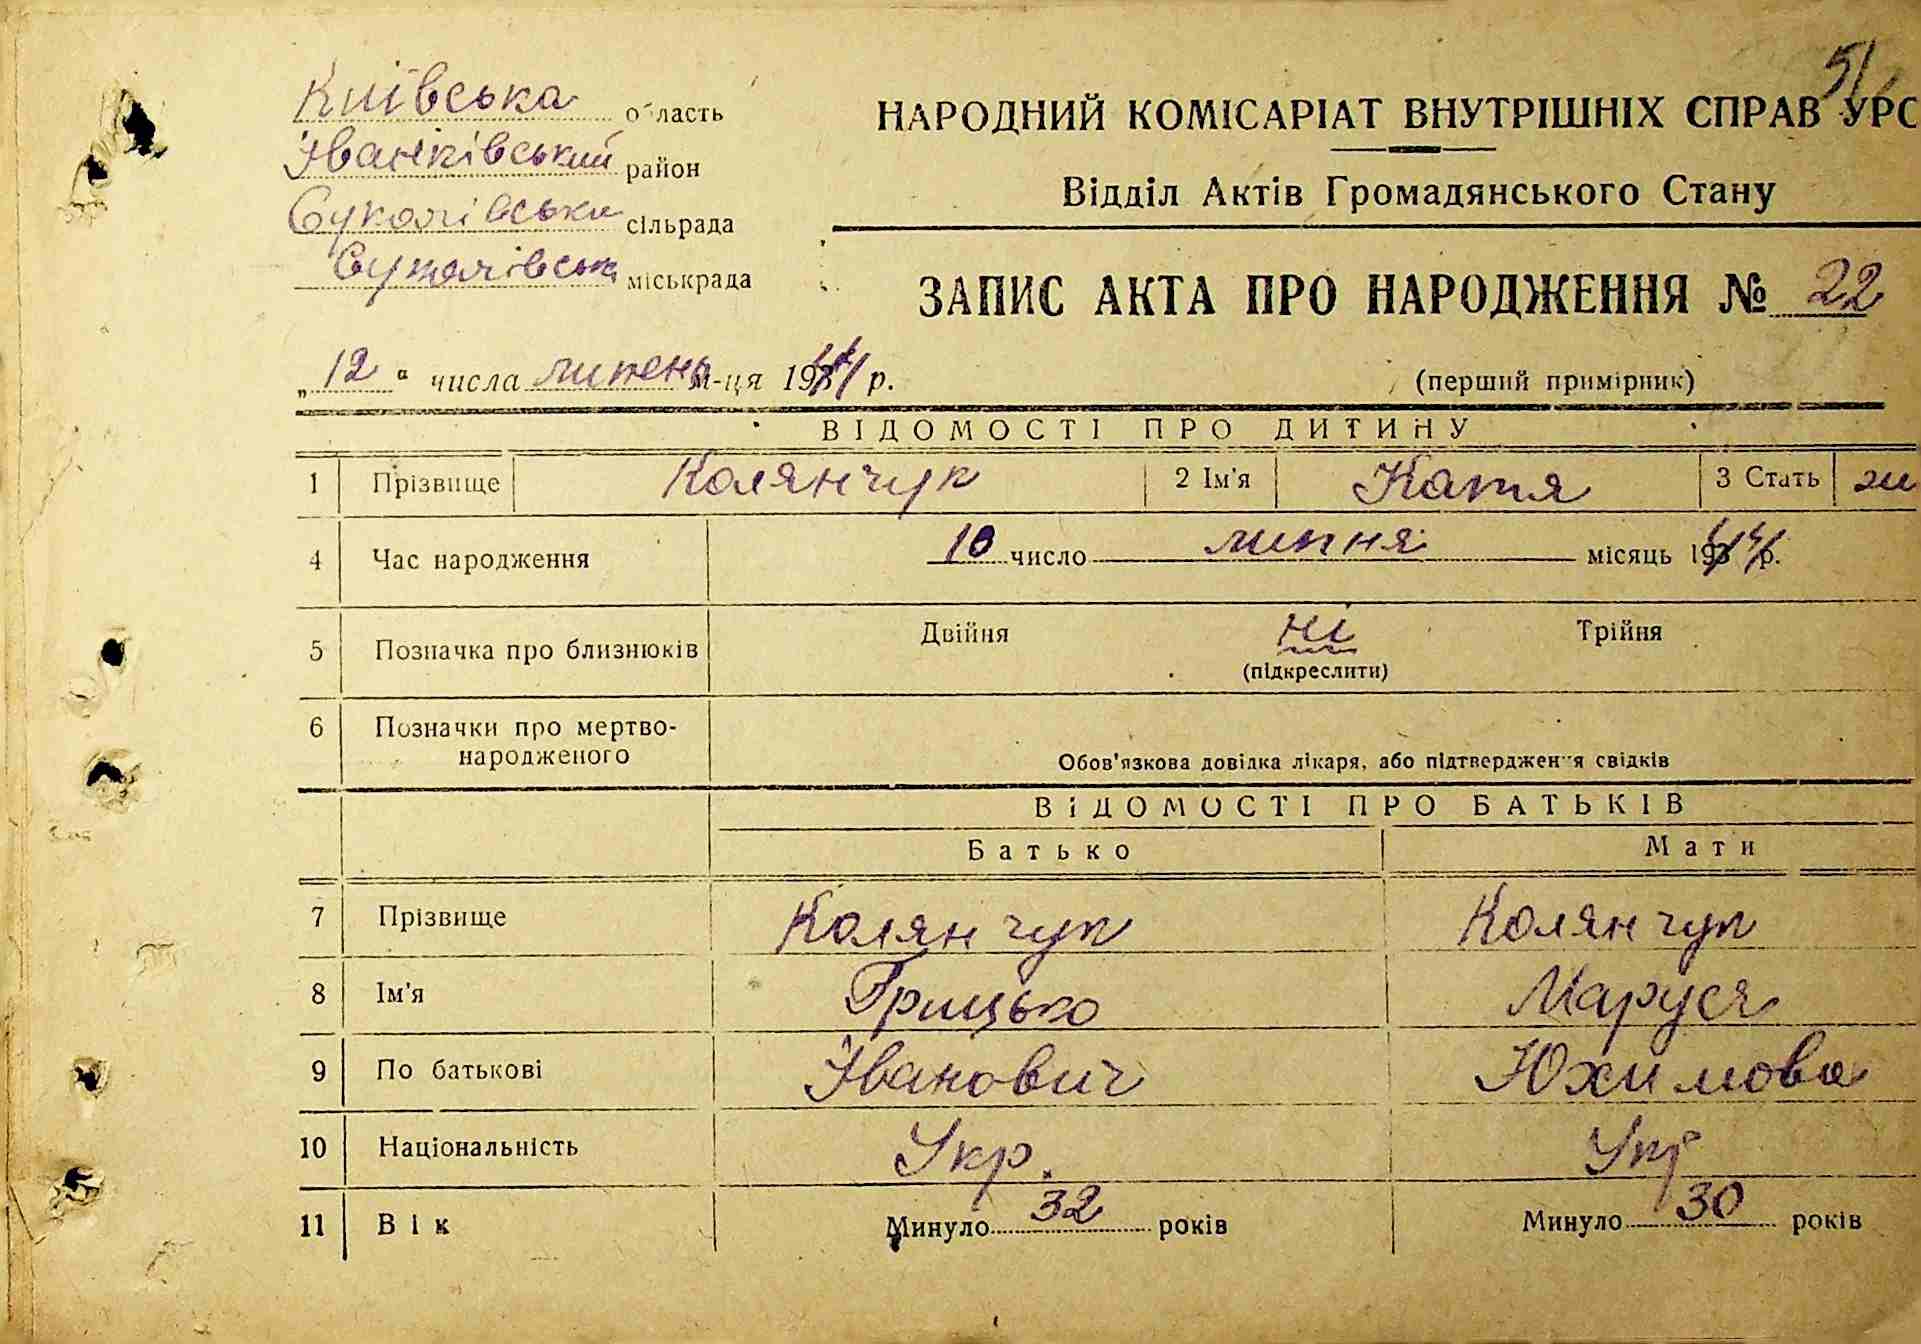 51
Київська область
Іванківський район
сільрада
міськрада
НАРОДНИЙ КОМІСАРІАТ ВНУТРІШНІХ СПРАВ УРС
Відділ Актів Громадянського Стану
ЗАПИС АКТА ПРО НАРОДЖЕННЯ № 22
„12“ числа липень м-ця 1944 р.
(перший примірник)
ВІДОМОСТІ ПРО ДИТИНУ
1 Прізвище Колянчук 2 Ім'я Катя 3 Стать ж
4 Час народження 10 число липня місяць 1944 р.
5 Позначка про близнюків Двійня ні Трійня
(підкреслити)
6 Позначки про мертво-
народженого
Обов'язкова довідка лікаря, або підтвердження свідків
ВІДОМОСТІ ПРО БАТЬКІВ
Батько Мати
7 Прізвище Колянчук Колянчук
8 Ім'я Грицько Маруся
9 По батькові Іванович Юхимова
10 Національність Укр. Укр
11 Вік Минуло 32 років Минуло 30 років